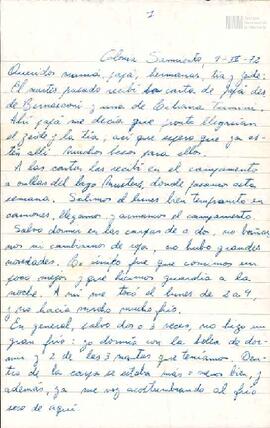 1
Colonia Sarmiento, 9-IV-72
Queridos mamá, papá, hermanas, tía y zeide:
El martes pasado recibí la carta de papá des
de Bernasconi y una de Tatiana
Ahí papá me decía que pronto llegarían
el zeide y la tía, así que espero que ya es
tén allí. Muchos besos para ellos.
A las cartas las recibí en el campamento
a orillas del lago Musters, donde pasamos esta
semana. Salimos el lunes bien tempranito en
camiones, llegamos y armamos el campamento.
Salvo dormir en las carpas de a dos, no bañar
nos ni cambiarnos de ropa, no hubo grandes
novedades. Lo único fue que comimos un
poco mejor y que hicimos guardia a la
noche. A mí me tocó el lunes de 2 a 4,
y no hacía mucho mucho frío.
En general, salvo dos o 3 veces, no hizo un
gran frío: yo dormía con la bolsa de dor
mir y 2 de las 3 mantas que teníamos. Den
tro de la carpa se estaba mas o menos bien, y
además, ya me voy acostumbrando al frío
seco de aquí.